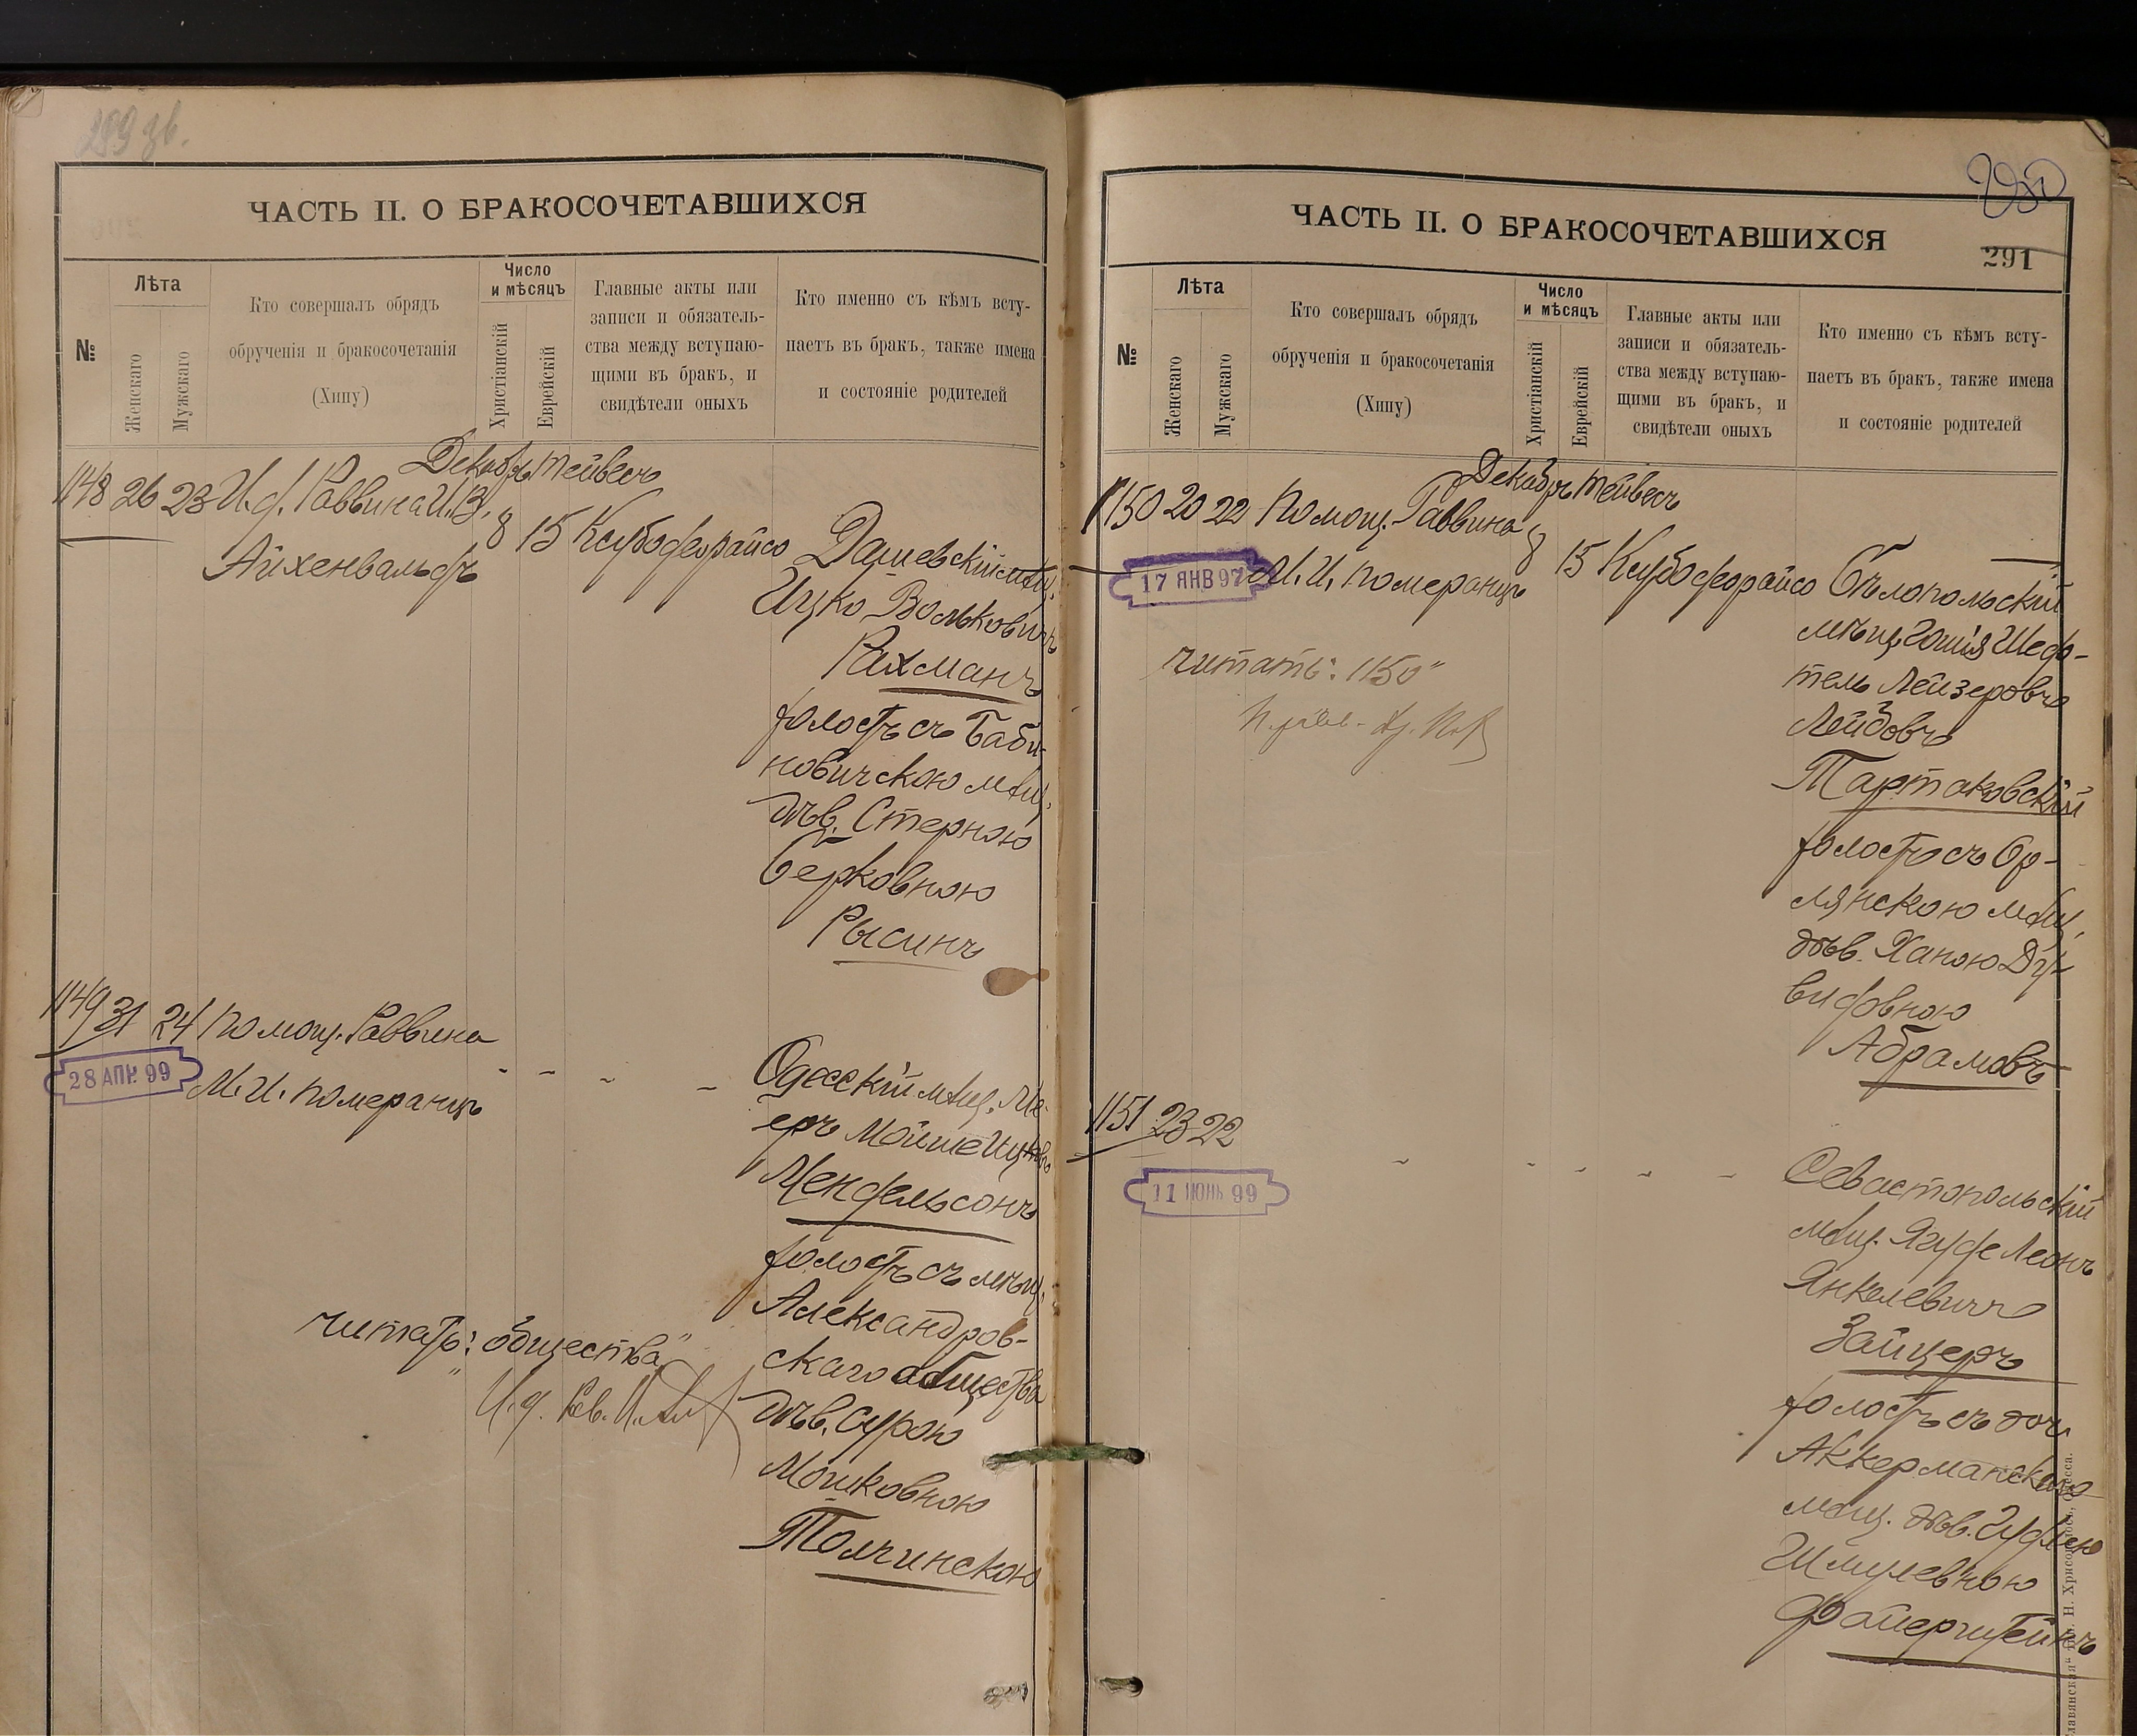 289 зв.
ЧАСТЬ II. О БРАКОСОЧЕТАВШИХСЯ
№
Лѣта
Женскаго
Мужскаго
Кто совершалъ обрядъ
обрученія и бракосочетанія
(Хипу)
Число
и мѣсяцъ
Христіанскій
Еврейскій
Главные акты или
записи и обязатель-
ства между вступаю-
щими въ бракъ, и
свидѣтели оныхъ
Кто именно съ кѣмъ всту-
паетъ въ бракъ, также имена
и состояніе родителей
Декабрь Тейвесъ
1148 26 23 И.д. Раввина И.З. 8 15 Ксубо дерайсо Дашевскій мѣщ.
Айхенвальдъ
Ицко Вольковичъ
Рахманъ
холостъ съ Баби-
новичскою мѣщ.
дѣв. Стерною
Берковною
Рысинъ
1149 31 24 Помощ. Раввина
28 АПР. 99
М.И. Померанцъ
Одесскій мѣщ. Ме-
еръ Мойше Ицковъ
Мендельсонъ
холостъ съ мѣщ.
Александров-
скаго общества
дѣв. Сурою
Мошковною
Толчинскою
читать: "общества"
И.д. Рав.
280
ЧАСТЬ II. О БРАКОСОЧЕТАВШИХСЯ
291
№
Лѣта
Женскаго
Мужскаго
Кто совершалъ обрядъ
обрученія и бракосочетанія
(Хипу)
Число
и мѣсяцъ
Христіанскій
Еврейскій
Главные акты или
записи и обязатель-
ства между вступаю-
щими въ бракъ, и
свидѣтели оныхъ
Кто именно съ кѣмъ всту-
паетъ въ бракъ, также имена
и состояніе родителей
Декабрь Тейвесъ
1150 20 22 Помощ. Раввина 8 15 Ксубо дерайсо Бѣлопольскій
17 ЯНВ 97
М.И. Померанцъ
мѣщ. Гошія Шеф-
тель Лейзеровъ
Лейбовъ
Тартаковскій
холостъ съ Ор-
лянскою мѣщ.
дѣв. Ханою Ду-
видовною
Абрамовъ
читать: "1150"
1151 23 22
11 ІЮНЬ 99
Севастопольскій
мѣщ. Ягуде Леонъ
Янкелевичъ
Зайцеръ
холостъ съ доч.
Аккерманскаго
мѣщ. дѣв.
Шмулевною
Файерштейнъ
"Славянская" тип. Н. Хрисогелосъ, Одесса.